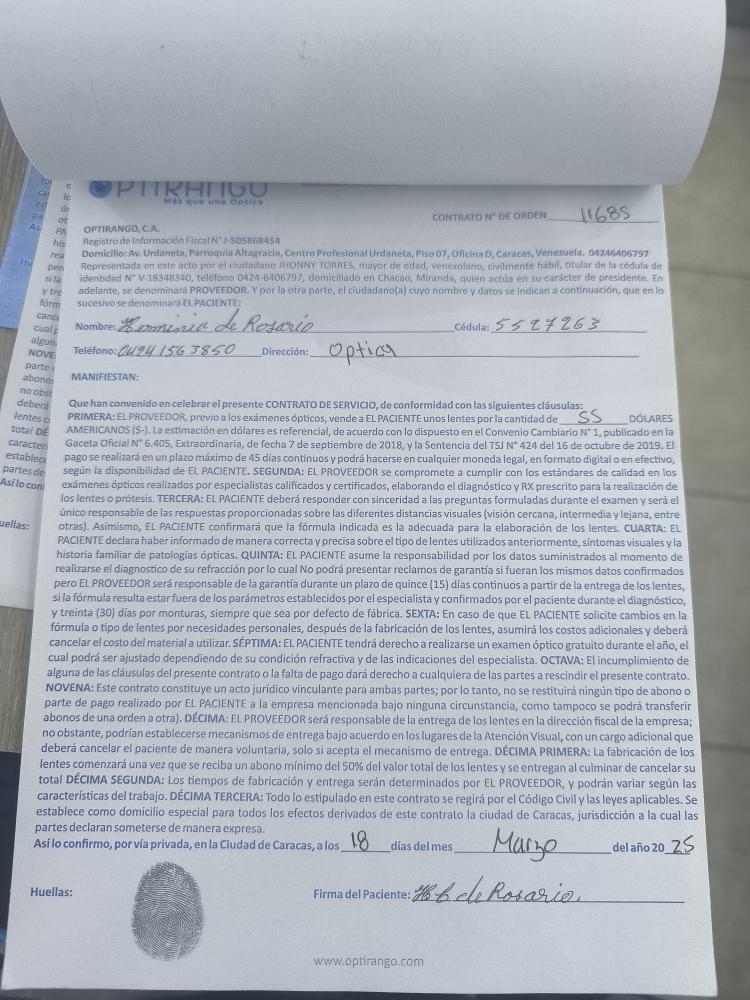 OPTIRANGO
Más que una Óptica
CONTRATO N° DE ORDEN 11685
OPTIRANGO, C.A.
Registro de Información Fiscal N° J-505868454
Domicilio: Av. Urdaneta, Parroquia Altagracia, Centro Profesional Urdaneta, Piso 07, Oficina D, Caracas, Venezuela. 04246406797
Representada en este acto por el ciudadano JHONNY TORRES, mayor de edad, venezolano, civilmente hábil, titular de la cédula de
identidad N° V-18348340, teléfono 0424-6406797, domiciliado en Chacao, Miranda, quien actúa en su carácter de presidente. En
adelante, se denominará PROVEEDOR. Y por la otra parte, el ciudadano(a) cuyo nombre y datos se indican a continuación, que en lo
sucesivo se denominará EL PACIENTE:
Nombre: Herminia de Rosario Cédula: 5527263
Teléfono: 04241563850 Dirección: Optica
MANIFIESTAN:
Que han convenido en celebrar el presente CONTRATO DE SERVICIO, de conformidad con las siguientes cláusulas:
PRIMERA: EL PROVEEDOR, previo a los exámenes ópticos, vende a EL PACIENTE unos lentes por la cantidad de 55 DÓLARES
AMERICANOS ($-). La estimación en dólares es referencial, de acuerdo con lo dispuesto en el Convenio Cambiario N° 1, publicado en la
Gaceta Oficial N° 6.405, Extraordinaria, de fecha 7 de septiembre de 2018, y la Sentencia del TSJ N° 424 del 16 de octubre de 2019. El
pago se realizará en un plazo máximo de 45 días continuos y podrá hacerse en cualquier moneda legal, en formato digital o en efectivo,
según la disponibilidad de EL PACIENTE. SEGUNDA: EL PROVEEDOR se compromete a cumplir con los estándares de calidad en los
exámenes ópticos realizados por especialistas calificados y certificados, elaborando el diagnóstico y RX prescrito para la realización de
los lentes o prótesis. TERCERA: EL PACIENTE deberá responder con sinceridad a las preguntas formuladas durante el examen y será el
único responsable de las respuestas proporcionadas sobre las diferentes distancias visuales (visión cercana, intermedia y lejana, entre
otras). Asimismo, EL PACIENTE confirmará que la fórmula indicada es la adecuada para la elaboración de los lentes. CUARTA: EL
PACIENTE declara haber informado de manera correcta y precisa sobre el tipo de lentes utilizados anteriormente, síntomas visuales y la
historia familiar de patologías ópticas. QUINTA: EL PACIENTE asume la responsabilidad por los datos suministrados al momento de
realizarse el diagnostico de su refracción por lo cual No podrá presentar reclamos de garantía si fueran los mismos datos confirmados
pero EL PROVEEDOR será responsable de la garantía durante un plazo de quince (15) días continuos a partir de la entrega de los lentes,
si la fórmula resulta estar fuera de los parámetros establecidos por el especialista y confirmados por el paciente durante el diagnóstico,
y treinta (30) días por monturas, siempre que sea por defecto de fábrica. SEXTA: En caso de que EL PACIENTE solicite cambios en la
fórmula o tipo de lentes por necesidades personales, después de la fabricación de los lentes, asumirá los costos adicionales y deberá
cancelar el costo del material a utilizar. SÉPTIMA: EL PACIENTE tendrá derecho a realizarse un examen óptico gratuito durante el año, el
cual podrá ser ajustado dependiendo de su condición refractiva y de las indicaciones del especialista. OCTAVA: El incumplimiento de
alguna de las cláusulas del presente contrato o la falta de pago dará derecho a cualquiera de las partes a rescindir el presente contrato.
NOVENA: Este contrato constituye un acto jurídico vinculante para ambas partes; por lo tanto, no se restituirá ningún tipo de abono o
parte de pago realizado por EL PACIENTE a la empresa mencionada bajo ninguna circunstancia, como tampoco se podrá transferir
abonos de una orden a otra). DÉCIMA: EL PROVEEDOR será responsable de la entrega de los lentes en la dirección fiscal de la empresa;
no obstante, podrían establecerse mecanismos de entrega bajo acuerdo en los lugares de la Atención Visual, con un cargo adicional que
deberá cancelar el paciente de manera voluntaria, solo si acepta el mecanismo de entrega. DÉCIMA PRIMERA: La fabricación de los
lentes comenzará una vez que se reciba un abono mínimo del 50% del valor total de los lentes y se entregan al culminar de cancelar su
total DÉCIMA SEGUNDA: Los tiempos de fabricación y entrega serán determinados por EL PROVEEDOR, y podrán variar según las
características del trabajo. DÉCIMA TERCERA: Todo lo estipulado en este contrato se regirá por el Código Civil y las leyes aplicables. Se
establece como domicilio especial para todos los efectos derivados de este contrato la ciudad de Caracas, jurisdicción a la cual las
partes declaran someterse de manera expresa.
Así lo confirmo, por vía privada, en la Ciudad de Caracas, a los 18 días del mes Marzo del año 2025
Huellas: Firma del Paciente: H b de Rosario.
www.optirango.com